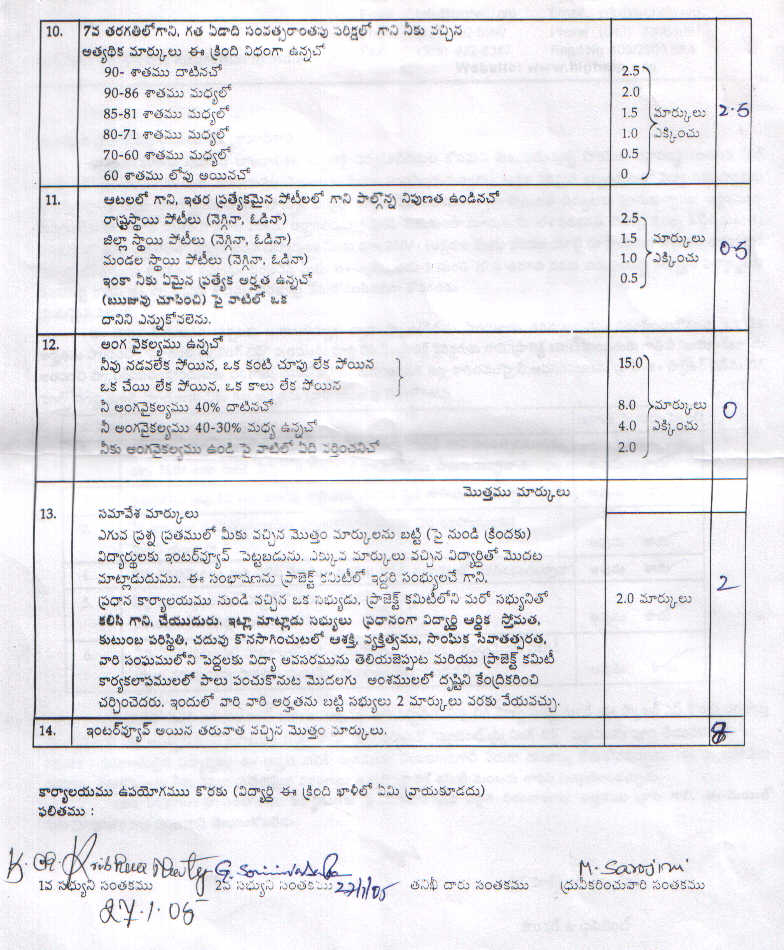 10. 7వ తరగతిలోగాని, గత ఏడాది సంవత్సరాంతపు పరీక్షలో గాని నీకు వచ్చిన
అత్యధిక మార్కులు ఈ క్రింది విధంగా ఉన్నచో
90- శాతము దాటినచో 2.5
90-86 శాతము మధ్యలో 2.0
85-81 శాతము మధ్యలో 1.5 మార్కులు 2.5
80-71 శాతము మధ్యలో 1.0 ఎక్కించు
70-60 శాతము మధ్యలో 0.5
60 శాతము లోపు అయినచో 0
11. ఆటలలో గాని, ఇతర ప్రత్యేకమైన పోటీలలో గాని పాల్గొన్న నిపుణత ఉండినచో
రాష్ట్రస్థాయి పోటీలు (నెగ్గినా, ఓడినా) 2.5
జిల్లా స్థాయి పోటీలు (నెగ్గినా, ఓడినా) 1.5 మార్కులు 0.5
మండల స్థాయి పోటీలు (నెగ్గినా, ఓడినా) 1.0 ఎక్కించు
ఇంకా నీకు ఏమైన ప్రత్యేక అర్హత ఉన్నచో 0.5
(ఋజువు చూపించి) పై వాటిలో ఒక
దానిని ఎన్నుకోవలెను.
12. అంగ వైకల్యము ఉన్నచో
నీవు నడవలేక పోయిన, ఒక కంటి చూపు లేక పోయిన 15.0
ఒక చేయి లేక పోయిన, ఒక కాలు లేక పోయిన
నీ అంగవైకల్యము 40% దాటినచో 8.0 మార్కులు 0
నీ అంగవైకల్యము 40-30% మధ్య ఉన్నచో 4.0 ఎక్కించు
నీకు అంగవైకల్యము ఉండి పై వాటిలో ఏది వర్తించనిచో 2.0
మొత్తము మార్కులు
13. సమావేశ మార్కులు
ఎగువ ప్రశ్న ప్రతములో మీకు వచ్చిన మొత్తం మార్కులను బట్టి (పై నుండి క్రిందకు)
విద్యార్థులకు ఇంటర్వ్యూవ్ పెట్టబడును. ఎక్కువ మార్కులు వచ్చిన విద్యార్థితో మొదట
మాట్లాడుదుము. ఈ సంభాషణను ప్రాజెక్ట్ కమిటీలో ఇద్దరి సంభ్యులచే గాని,
ప్రధాన కార్యాలయము నుండి వచ్చిన ఒక సభ్యుడు, ప్రాజెక్ట్ కమిటీలోని మరో సభ్యునితో 2.0 మార్కులు 2
కలిసి గాని, చేయుదురు. ఇట్లా మాట్లాడు సభ్యులు ప్రధానంగా విద్యార్థి ఆర్థిక స్తోమత,
కుటుంబ పరిస్థితి, చదువు కొనసాగించుటలో ఆశక్తి, వ్యక్తిత్వము, సాంఘిక సేవాతత్పరత,
వారి సంఘములోని పెద్దలకు విద్యా అవసరమును తెలియజెప్పుట మరియు ప్రాజెక్ట్ కమిటీ
కార్యకలాపములలో పాలు పంచుకొనుట మొదలగు అంశములలో దృష్టిని కేంద్రికరించి
చర్చించెదరు. ఇందులో వారి వారి అర్హతను బట్టి సభ్యులు 2 మార్కులు వరకు వేయవచ్చు.
14. ఇంటర్వ్యూవ్ అయిన తరువాత వచ్చిన మొత్తం మార్కులు. 8
కార్యాలయము ఉపయోగముు కొరకు (విద్యార్థి ఈ క్రింది ఖాళీలో ఏమి వ్రాయకూడదు)
ఫలితము :
Krishna G. M. Sarojini
1వ సభ్యుని సంతకము 2వ సభ్యుని సంతకము 27/1/05 తనిఖీ దారు సంతకము ధ్రువీకరించువారి సంతకము
27.1.05